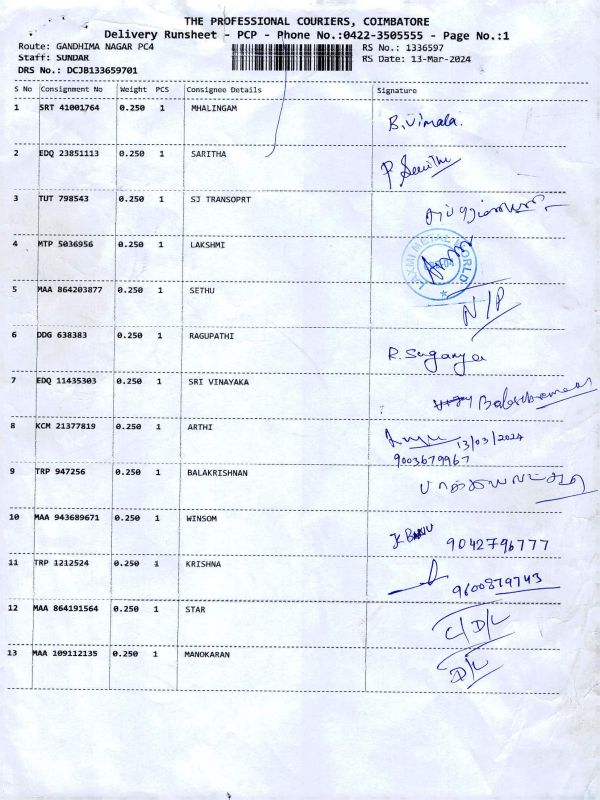 THE PROFESSIONAL COURIERS, COIMBATORE
Delivery Runsheet - PCP - Phone No.:0422-3505555 - Page No.:1
Route: GANDHIMA NAGAR PC4 RS No.: 1336597
Staff: SUNDAR RS Date: 13-Mar-2024
DRS No.: DCJB133659701
S No Consignment No Weight PCS Consignee Details Signature
1 SRT 41001764 0.250 1 MHALINGAM B.Vimala.
2 EDQ 23851113 0.250 1 SARITHA
3 TUT 798543 0.250 1 SJ TRANSOPRT
4 MTP 5036956 0.250 1 LAKSHMI LAXMI METAL WORLD
5 MAA 864203877 0.250 1 SETHU N/P
6 DDG 638383 0.250 1 RAGUPATHI R. Suganya
7 EDQ 11435303 0.250 1 SRI VINAYAKA
8 KCM 21377819 0.250 1 ARTHI 13/03/2024
9003679967
9 TRP 947256 0.250 1 BALAKRISHNAN
10 MAA 943689671 0.250 1 WINSOM 9042796777
11 TRP 1212524 0.250 1 KRISHNA 9600879743
12 MAA 864191564 0.250 1 STAR C/D/L
13 MAA 109112135 0.250 1 MANOKARAN D/L